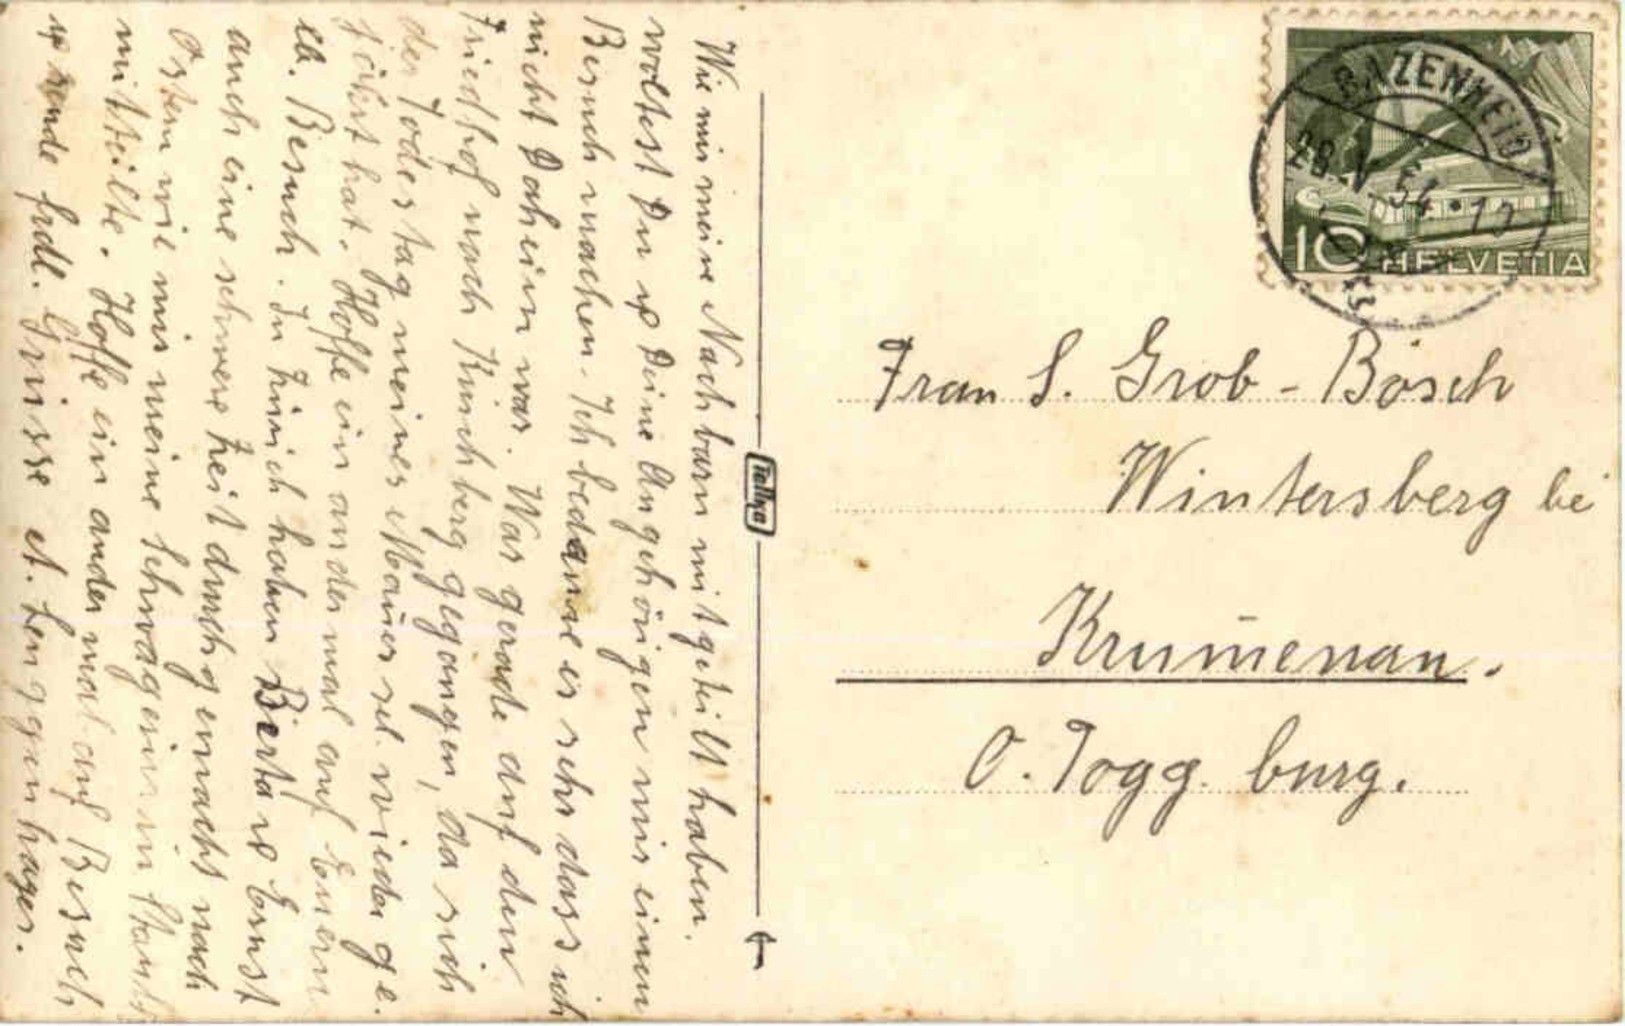 Wie mir meine Nachbarn mitgeteilt haben.
woltest Du u Deine Angehörigen mir einen
Besuch machen. Ich bedaure es sehr dass ich
nicht Daheim war. War gerade auf den
Friedhof nach Kirchberg gegangen, da sich
der Todestag meines Mañes sel. wieder ge-
jährt hat. Hoffe ein ander mal auf Euern
lb. Besuch. In Zürich haben Berta u Ernst
auch eine schwere Zeit durchgemacht nach
Ostern wie mir meine Schwägerin in
mitteilte. Hoffe ein ander mal auf Besuch
u sende frdl. Grüsse
Tellko
BAZENHEID
28.V.54
10 HELVETIA
Frau S. Grob - Bösch
Wintersberg bei
Krum̄enau.
O. Togg. burg.